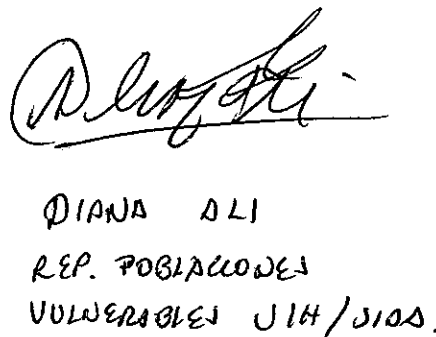 DIANA ALI
REP. POBLACIONES
VULNERABLES VIH/SIDA.